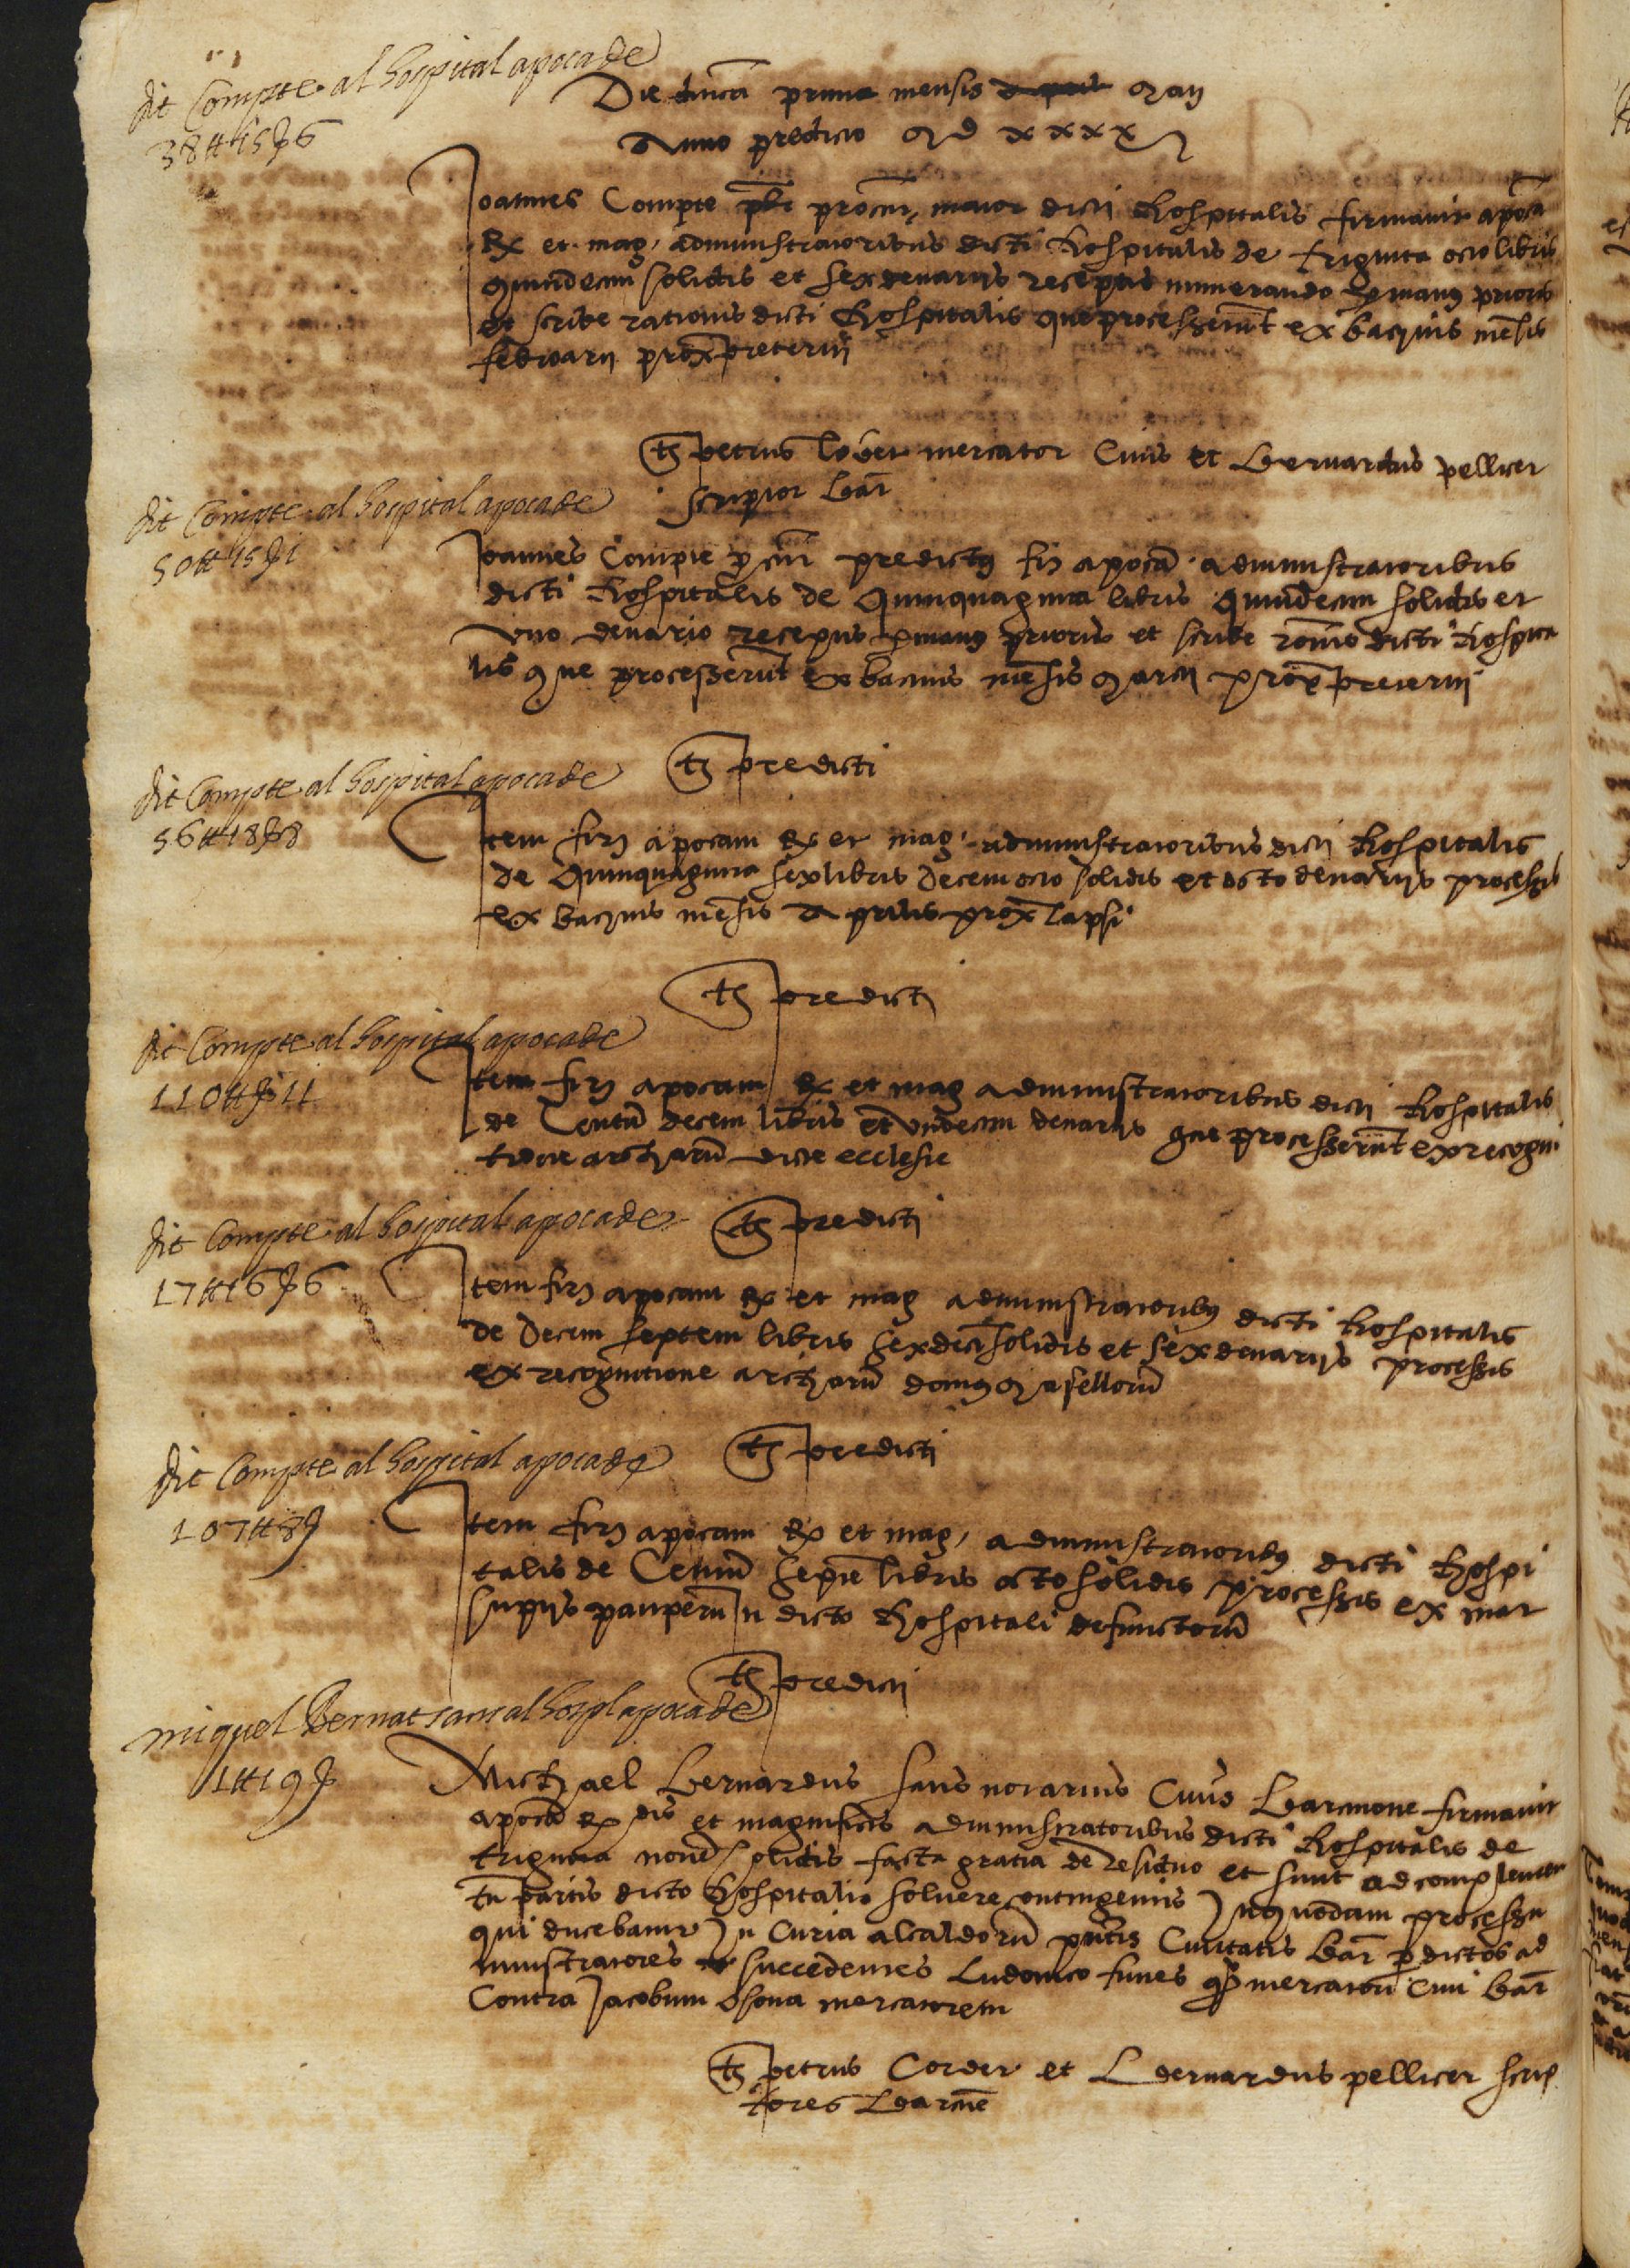 dit Compte al hospital apoca de
38 ℔ 15 ẞ 6
Die dnica prima mensis aprilis Maij
Anno predicto M D x x x x
Joannes Compte pbr procur, maior dicti Hospitalis firmavit apoca
Rx et mag, administratoribus dicti Hospitalis de triginta octo libris
quindecim solidis et sex denarijs receptis numerando p manus prioris
et scribe rationis dicti Hospitalis que processerunt ex bacinis mesis
februarij prox preteriti
ts petrus lober mercator Civis et Bernardus pellicer
scriptor bar
dit Compte al hospital apoca de
50 ℔ 15 ẞ 1
Joannes Compte p cur predictus fir apoca administratoribus
dicti Hospitalis de Quinquaginta libris quindecim solidis et
uno denario receptis p manus prioris et scribe ronis dicti Hospita
lis que processerunt ex bacinis mesis Marcij prox preteriti
ts predicti
dit Compte al hospital apoca de
56 ℔ 18 ẞ 8
Item fir apocam Rx et mag, administratoribus dicti Hospitalis
de Quinquaginta sex libris decem octo solidis et octo denarijs processis
ex bacinis mesis Aprilis prox lapsi
ts predicti
dit Compte al hospital apoca de
110 ℔ ẞ 11
Item fir apocam Rx et mag administratoribus dicti Hospitalis
de Centu decem libris et undecim denarijs que processerunt ex recogni
tione archaru dicte ecclesie
ts predicti
dit Compte al hospital apoca de
17 ℔ 16 ẞ 6
Item fir apocam Rx et mag administratoribus dicti Hospitalis
de Decem septem libris sexdeci solidis et sex denarijs processis
ex recognitione archaru domus Maselloru
ts predicti
dit Compte al hospital apoca de
107 ℔ 8 ẞ
Item fir apocam Rx et mag, administratoribus dicti Hospi
talis de Centum septe libris octo solidis processis ex mar
supijs pauperu in dicto Hospitali defunctoru
ts predicti
miquel Bernat sans al hospl apoca de
1 ℔ 19 ẞ
Michael Bernardus sans notarius Civis Barcinone firmavit
apoca Rx dis et magnificis administratoribus dicti Hospitalis de
triginta nove solidis facta gratia de residuo et sunt ad complemen
tu partis dicto Hospitalis solvere contingentis In quodam processu
qui ducebatur In Curia alcaldoru pntis Civitatis bar p dictos ad
ministratores succedentes Ludovico funes mercatori Civi bar
Contra Jacobum Osona mercatorem
ts petrus Corder et Bernardus pellicer scrip
tores Barcne